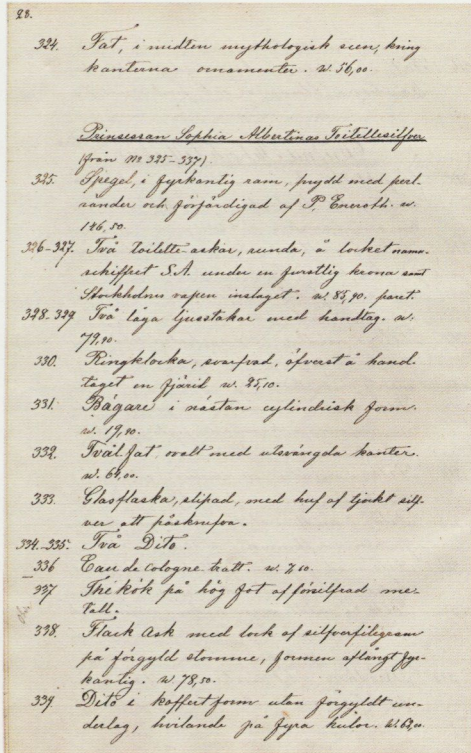 28.
324. Fat, i midten mythologisk scen, kring
kanterna ornamenter. w. 56,00.
Prinsessan Sophia Albertinas Toilettesilfver
(från No 325-337).
325. Spegel, i fyrkantig ram, prydd med perl-
ränder och förfärdigad af P. Eneroth. w.
146,50.
326-327. Två toilette-askar, runda, å locket namn-
schiffret S.A. under en furstlig krona samt
Stockholms vapen inslaget. w. 85,90. paret.
328. 329 Två låga ljusstakar med handtag. w.
79,90.
330. Ringklocka, svarfvad, öfverst å hand-
taget en fjäril w. 25,10.
331. Bägare i nästan cylindrisk form.
w. 19,90.
332. Tvål fat ovalt med utsvängda kanter.
w. 64,00.
333. Glasflaska, slipad, med huf af tjockt silf-
ver att påskrufva.
334-335. Två Dito.
336 Eau de Cologne-tratt. w.
337 Thékök på hög fot af försilfrad me-
tall.
338. Flack Ask med lock af silfverfilegram
på förgyld stomme, formen aflångt fyr-
kantig. w 78,50.
339. Dito i koffertform utan förgyldt un-
derlag, hvilande på fyra kulor.